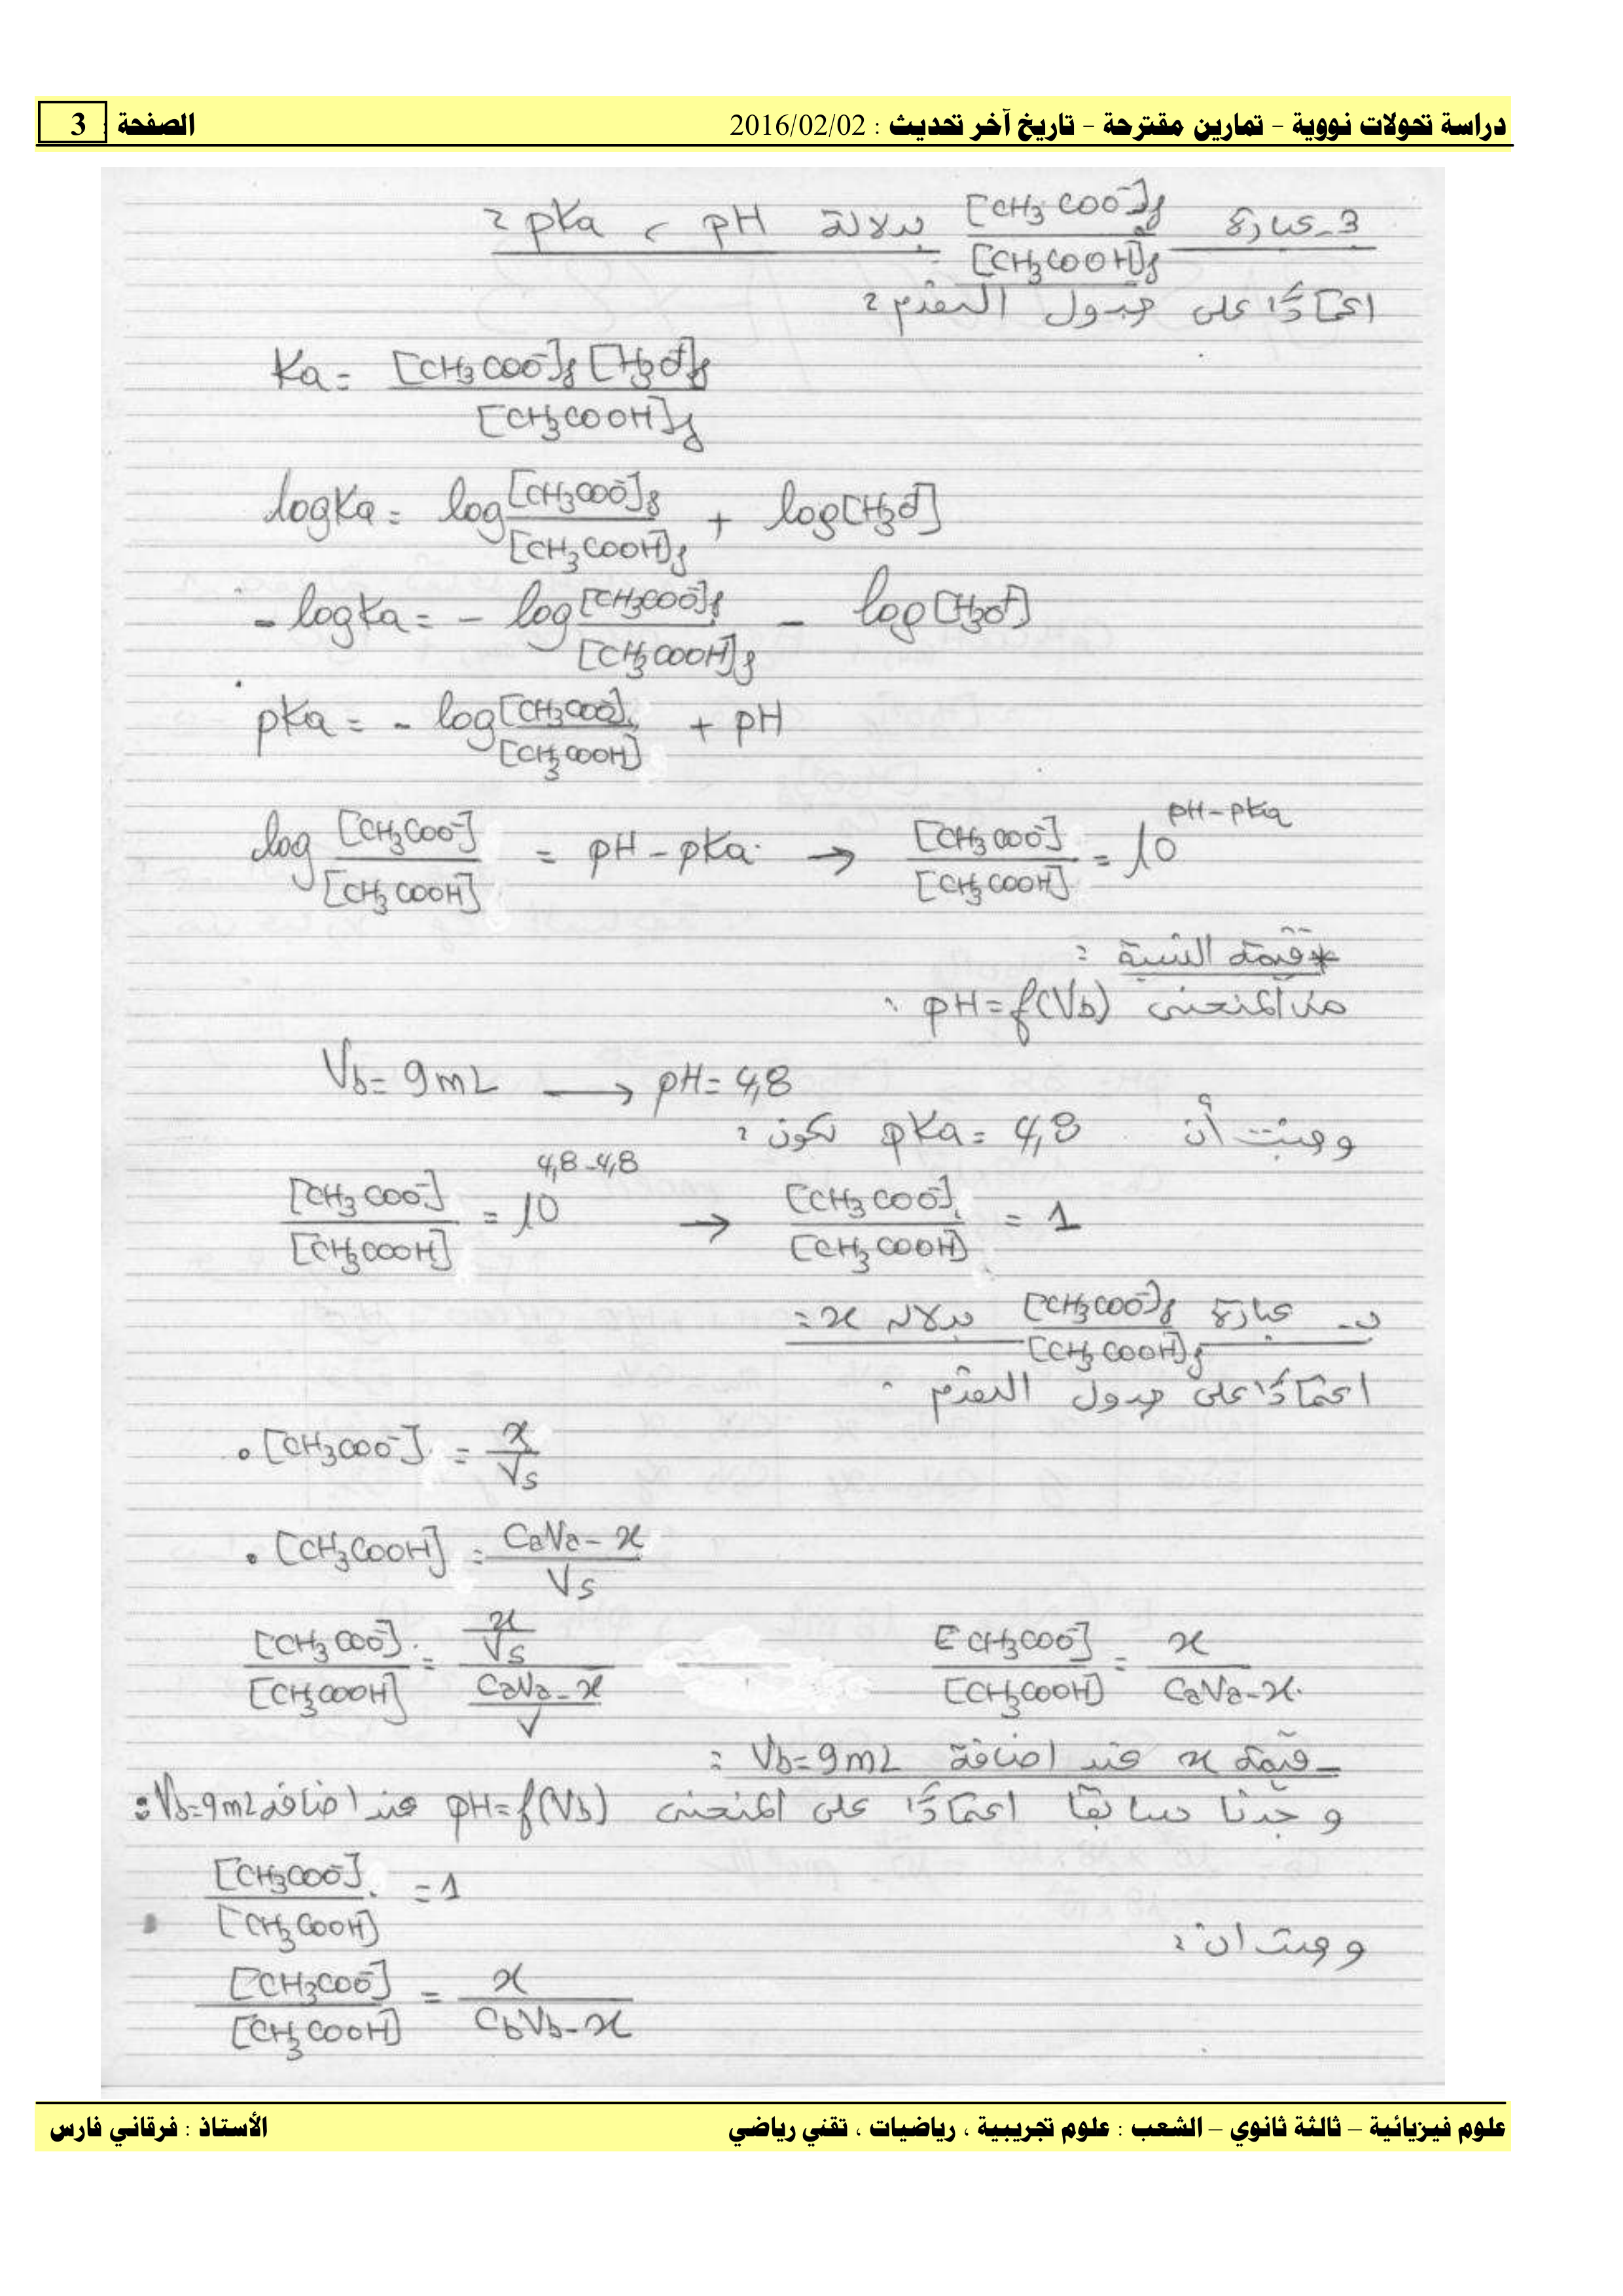 دراسة تحولات نووية – تمارين مقترحة – تاريخ آخر تحديث : 2016/02/02 الصفحة : 3
3- عبارة [CH3COO-]f / [CH3COOH]f بدلالة pH ، pKa :
اعتمادًا على جدول التقدم :
Ka = [CH3COO-]f [H3O+]f / [CH3COOH]f
logKa = log [CH3COO-]f / [CH3COOH]f + log[H3O+]
- logKa = - log [CH3COO-]f / [CH3COOH]f - log[H3O+]
pKa = - log [CH3COO-] / [CH3COOH] + pH
log [CH3COO-] / [CH3COOH] = pH - pKa → [CH3COO-] / [CH3COOH] = 10^(pH-pKa)
* قيمة النسبة :
من المنحنى pH = f(Vb) :
Vb = 9mL → pH = 4,8
وحيث أن pKa = 4,8 تكون :
[CH3COO-] / [CH3COOH] = 10^(4,8-4,8) → [CH3COO-] / [CH3COOH] = 1
ب- عبارة [CH3COO-]f / [CH3COOH]f بدلالة x :
اعتمادًا على جدول التقدم :
• [CH3COO-] = x / Vs
• [CH3COOH] = CaVa - x / Vs
[CH3COO-] / [CH3COOH] = (x / Vs) / (CaVa - x / V) [CH3COO-] / [CH3COOH] = x / CaVa - x
- قيمة x عند اضافة Vb = 9mL :
وجدنا سابقا اعتمادًا على المنحنى pH = f(Vb) عند اضافة Vb = 9mL :
[CH3COO-] / [CH3COOH] = 1
وحيث ان :
[CH3COO-] / [CH3COOH] = x / CbVb - x
علوم فيزيائية – ثالثة ثانوي – الشعب : علوم تجريبية ، رياضيات ، تقني رياضي الأستاذ : فرقاني فارس